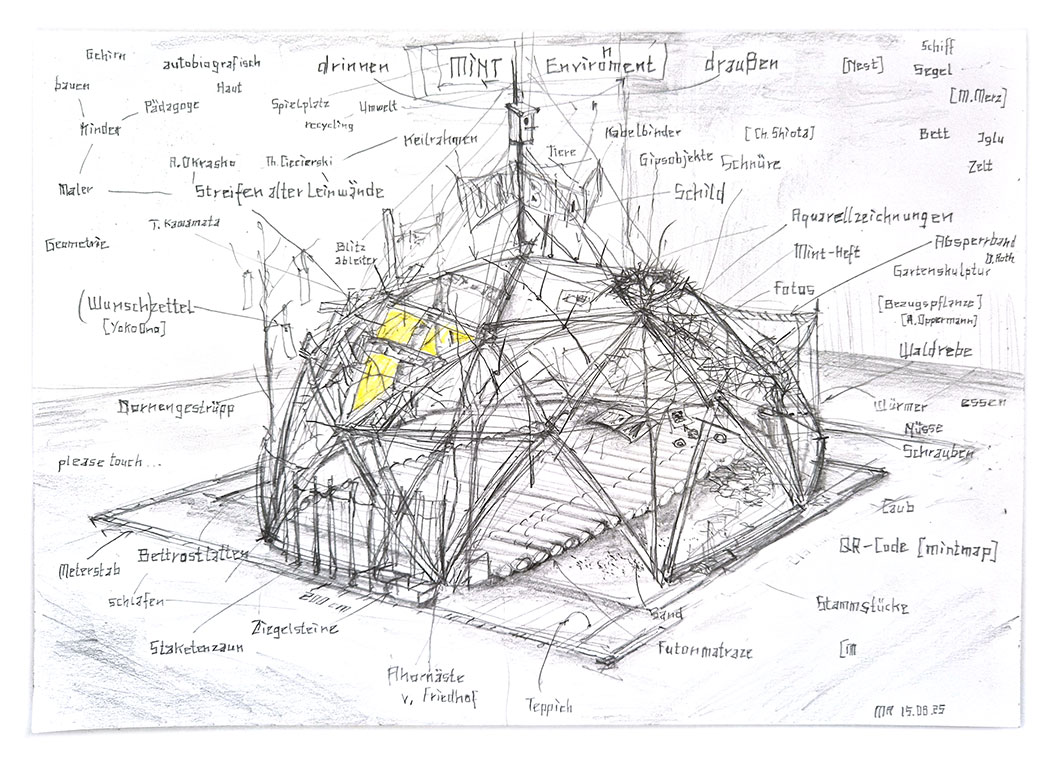 Gehirn
autobiografisch
drinnen
MINT
n
Enviroment
draußen
[Nest]
Schiff
Segel
bauen
Haut
Pädagoge
Spielplatz
Umwelt
recycling
[M.Merz]
Kinder
Keilrahmen
Kabelbinder
[Ch. Shiota]
Bett
Iglu
Tiere
Gipsobjekte
Schnüre
Zelt
A. Okrasko
Maler
Streifen alter Leinwände
Schild
T. Kawamata
Aquarellzeichnungen
Geometrie
Blitz
ableiter
Mint-Heft
Absperrband
D. Roth
Gartenskulptur
Fotos
(Wunschzettel
[Yoko Ono]
[Bezugspflanze]
[A. Oppermann]
Waldrebe
Dornengestrüpp
Würmer
essen
Nüsse
Schrauben
please touch...
Laub
Meterstab
Bettrostlatten
QR-Code [mintmap]
schlafen
200 cm
Ziegelsteine
Sand
Stammstücke
Staketenzaun
Futonmatraze
[m
Ahornäste
v. Friedhof
Teppich
MR 15.08.25